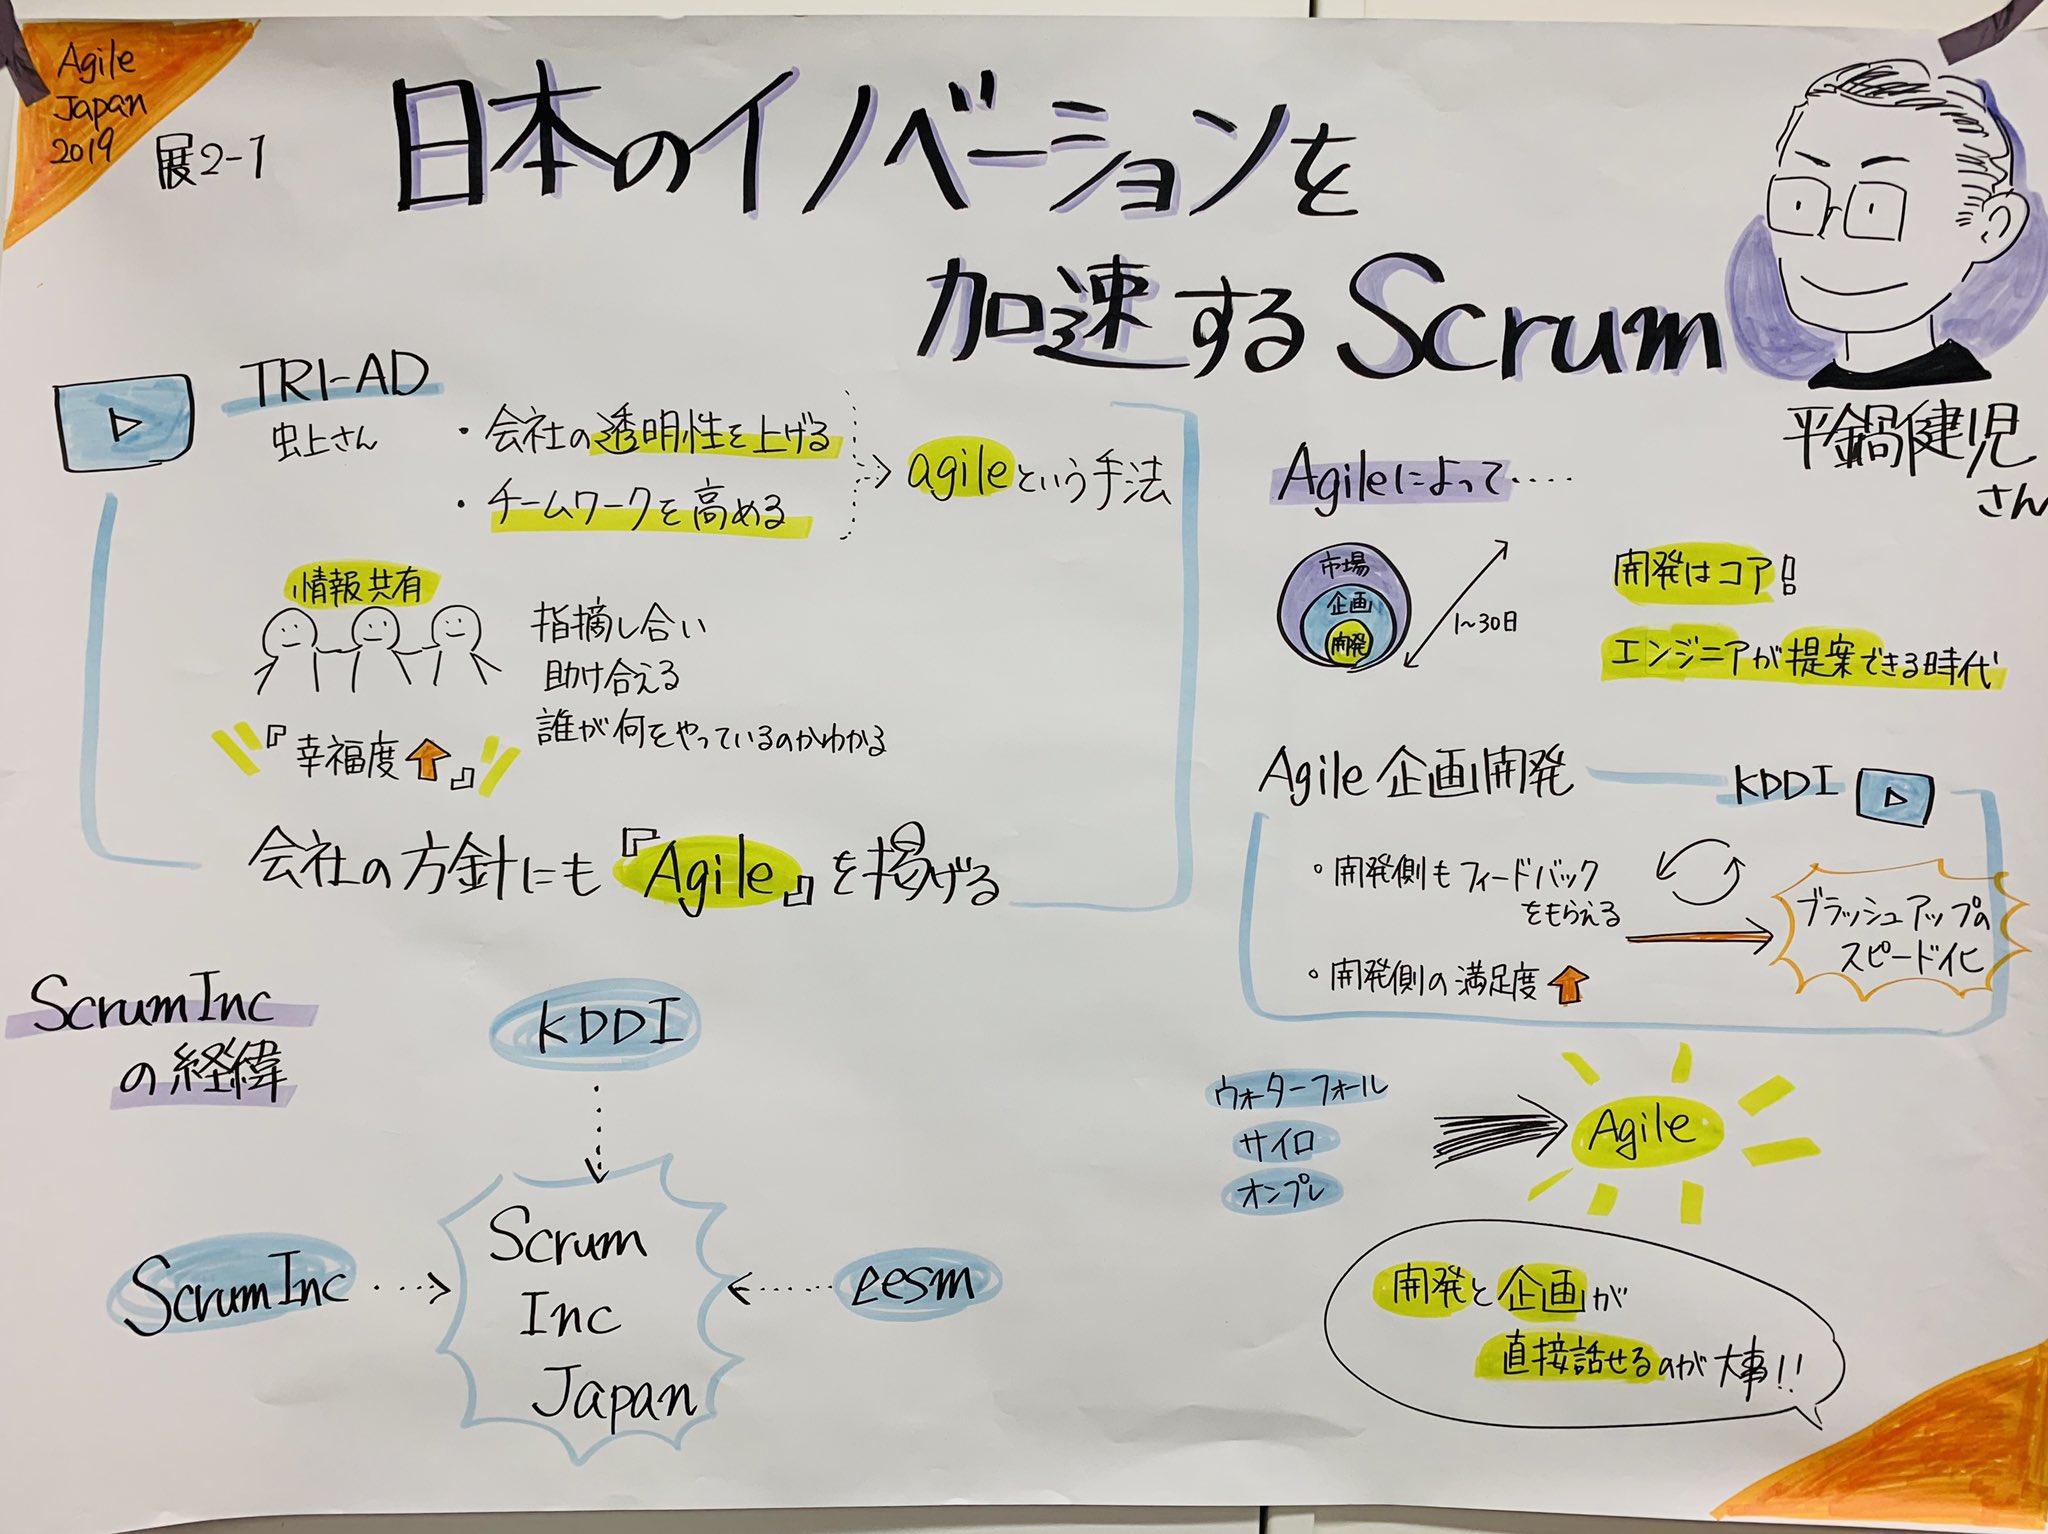 Agile
Japan
2019
展2-1
日本のイノベーションを
加速するScrum
平鍋健児
さん
TRI-AD
虫上さん
・会社の透明性を上げる
・チームワークを高める
agileという手法
情報共有
指摘し合い
助け合える
誰が何をやっているのかわかる
『幸福度』
会社の方針にも『Agile』を掲げる
Agileによって・・・・
市場
企画
開発
1〜30日
開発はコア!
エンジニアが提案できる時代
Agile企画開発
KDDI
。開発側もフィードバック
をもらえる
。開発側の満足度
ブラッシュアップの
スピード化
ScrumInc
の経緯
KDDI
ScrumInc
Scrum
Inc
Japan
eesm
ウォーターフォール
サイロ
オンプレ
Agile
開発と企画が
直接話せるのが大事!!